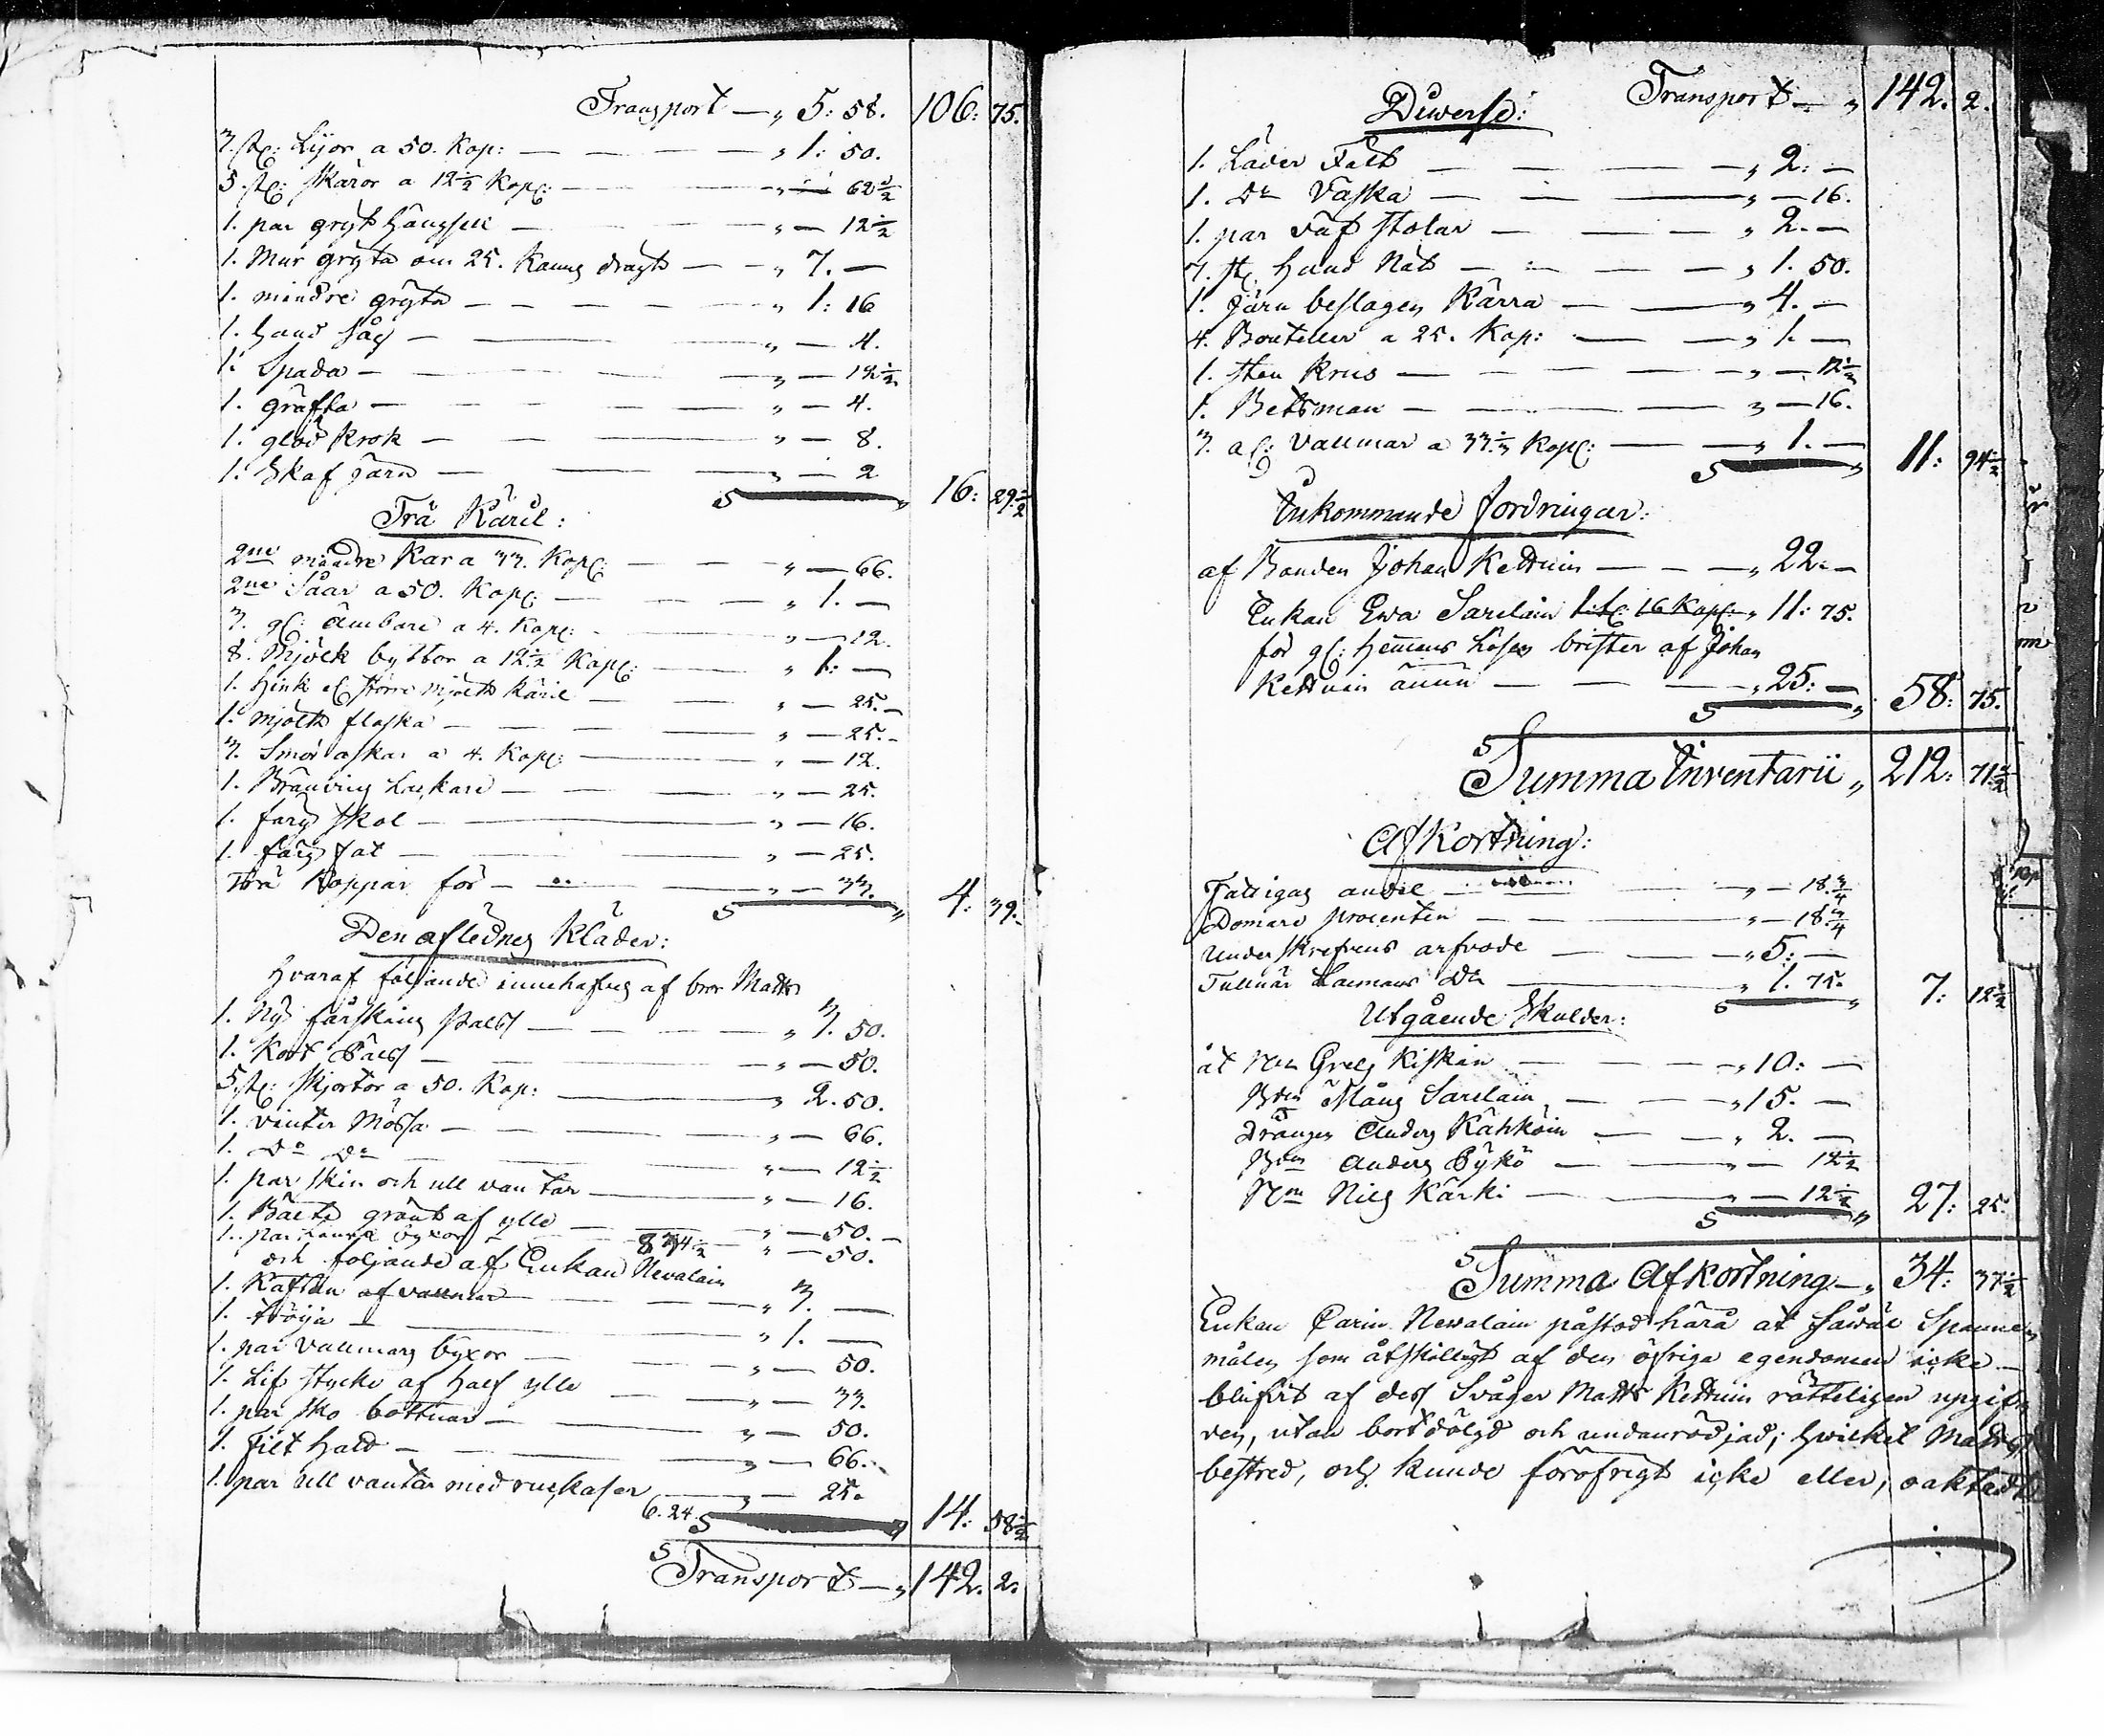 Transport — „ 5: 58. 106: 75.
3. st: Lijor a 50. Kop: — „ 1: 50.
5. st: skäror a 12½ Kop: — „ — 62½
1. par gryt hängsell — „ — 12½
1. Mur gryta om 25. Kanns dragt — „ 7. —
1. mindre gryta — „ 1: 16
1. hand såg — „ — 4.
1. Spada — „ — 12½
1. gräfta — „ — 4.
1. glöd krok — „ — 8.
1. Skaf järn — „ — 2
S „ 16: 29½
Trä Käril:
2ne mindre Kar a 33. Kop: — „ — 66.
2ne Såar a 50. Kop: — „ 1. —
3. gl: ämbare a 4. Kop: — „ — 12.
8. Mjölk byttor a 12½ Kop: — „ 1: —
1. Hink större mjölk käril — „ — 25. —
1. mjölk flaska — „ — 25. —
3. Smör askar a 4. Kop: — „ — 12.
1. Bränvins Lankare — „ — 25.
1. färg skål — „ — 16.
1. färg fat — „ — 25.
Trä Koppar för — „ — 33.
S „ 4: 39.
Den aflednes Kläder:
Hvaraf följande innehafves af bror Matts
1. Ny fårskins päls — „ 3. 50.
1. Kort Päls — „ — 50.
5. st: skjortor a 50. Kop: — „ 2. 50.
1. vinter Mössa — „ — 66.
1. Do Do — „ — 12½
1. par skin och ull vantar — „ — 16.
1. Bälte grönt af ylle — „ — 50. —
1. par byxor — 8 34½ „ — 50.
och följande af Enkan Nevalain
1. Kaftan af vallmar — „ 3. —
1. tröija — „ 1. —
1. par vallmars byxor — „ — 50.
1. Lif stycke af half ylle — „ — 33.
1. par sko bottnar — „ — 50.
1. Filt hatt — „ — 66.
1. par ull vantar med — „ — 25.
6. 24. S „ 14: 58½
S Transport — „ 142. 2.
Diverse: Transport — „ 142. 2.
1. Läder Fält — „ 2: —
1. Do Väska — „ — 16.
1. par väf stolar — „ 2. —
3. st: hand Nät — „ 1. 50.
1. Järn beslagen Kärra — „ 4. —
4. Bouteller a 25. Kop: — „ 1. —
1. sten Krus — „ — 12½
1. Betsman — „ — 16.
3. al: vallmar a 33⅓ Kop: — „ 1. —
S „ 11: 94½
Inkommande fordringar:
af Bonden Johan Kettuin — „ 22. —
Enkan Ewa Sarelain 16 Kop: „ 11: 75.
för gl: hemmans Lösen brister af Johan
Kettuin ännu — „ 25: —
S „ 58: 75.
S Summa Inventarii „ 212: 71½
Afkortning:
Fattigas andel — „ — 18¾
Domare procenten — „ — 18¾
Underskrefvens arfvode — „ 5: —
Tullnär Do — „ 1. 75.
S „ 7: 12½
Utgående Skulder:
åt Nm Grels Kiskin — „ 10: —
Bden Måns Sarelain — „ 15. —
Drängen Anders Kähköin — „ 2. —
Bden Anders Pykö — „ — 12½
Nm Nils Kärki — „ — 12½
S „ 27: 25.
S Summa Afkortning — „ 34: 37½
Enkan Carin Nevalain påstod härå at såwäl Spannen
målen som åtskilligt af den öfriga egendomen icke
blifvit af dess Svåger Matts Kettuin rätteligen upgifv
ven, utan bortdölgd och undanrödjad; hvilket Matts
bestred, och kunde föröfrigt icke eller, oaktadt